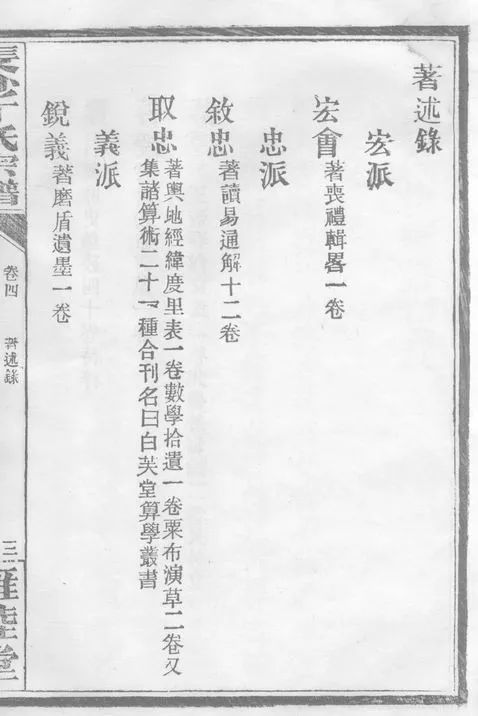 著述錄
宏派
宏會 著喪禮輯畧一卷
忠派
敘忠 著讀易通解十二卷
取忠 著輿地經緯度里表一卷數學拾遺一卷粟布演草二卷又
集諸算術二十一種合刊名曰白芙堂算學叢書
義派
銳義 著磨盾遺墨一卷
長沙丁氏宗譜
卷四
著述錄
三
雒崖堂